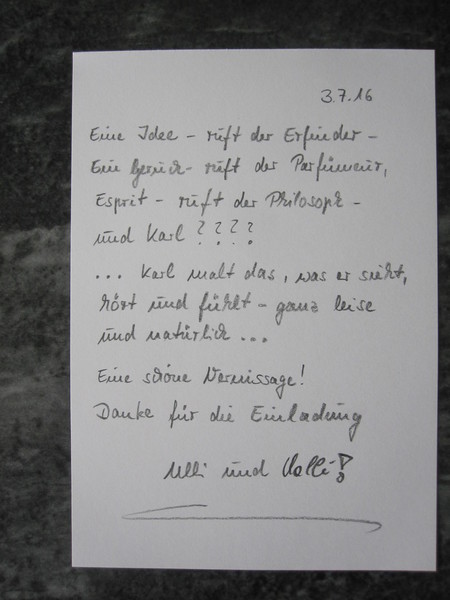 3.7.16
Eine Idee - ruft der Erfinder -
Ein Geruch - ruft der Parfümeur,
Esprit - ruft der Philosoph -
und Karl ? ? ? ?
... Karl malt das, was er sieht,
hört und fühlt - ganz leise
und natürlich ...
Eine schöne Vernissage!
Danke für die Einladung
Ulli und